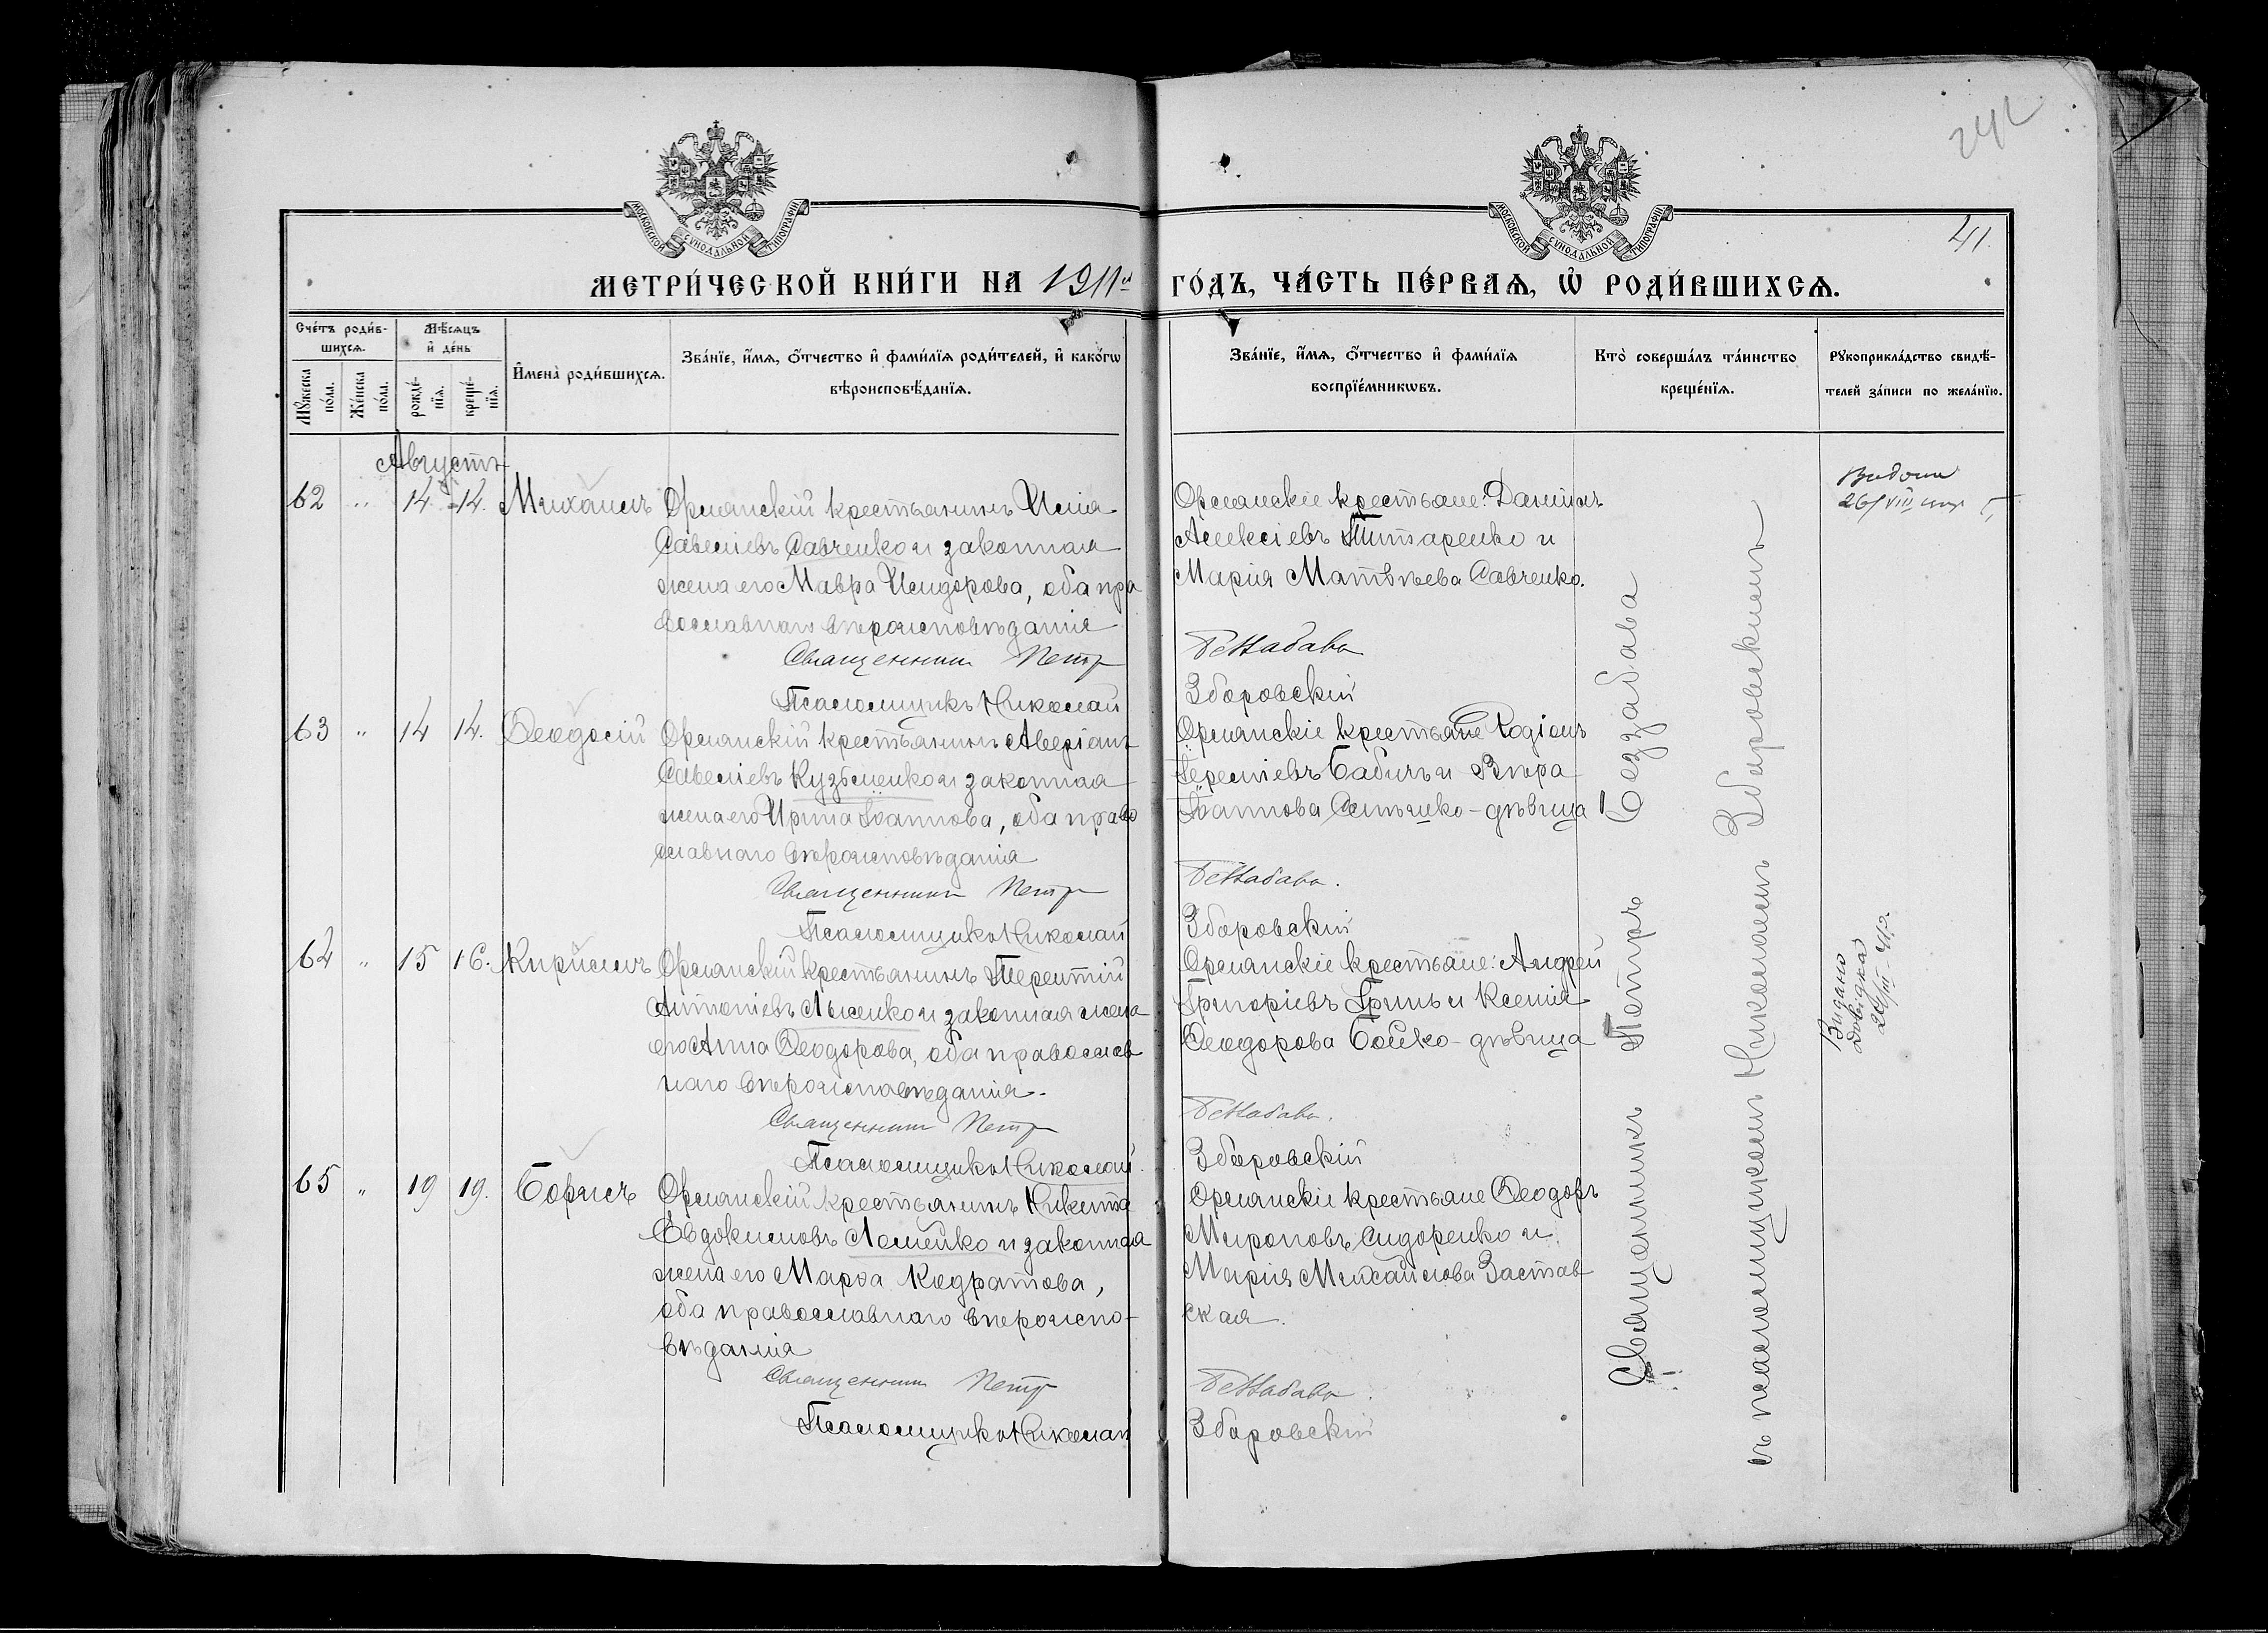 242
41.
МОСКОВСКОЙ СУНОДАЛЬНОЙ ТИПОГРАФІИ
МОСКОВСКОЙ СУНОДАЛЬНОЙ ТИПОГРАФІИ
МЕТРИ́ЧЕСКОЙ КНИ́ГИ НА 1911й ГО́ДЪ, ЧА́СТЬ ПЕ́РВАѦ, Ѡ҆ РОДИ́ВШИХСѦ.
Сче́тъ роди́в-
шихсѧ.
Мꙋ́жеска по́ла.
Же́нска по́ла.
Мѣ́сѧцъ и҆ де́нь
рожде́-нїѧ.
креще́-нїѧ.
И҆мена̀ роди́вшихсѧ.
Зва́нїе, и҆́мѧ, ѻ҆́тчество и҆ фами́лїѧ роди́телей, и҆ како́гѡ
вѣроисповѣ́данїѧ.
Зва́нїе, и҆́мѧ, ѻ҆́тчество и҆ фами́лїѧ
воспрїе́мникѡвъ.
Кто̀ соверша́лъ та́инство
креще́нїѧ.
Рꙋкоприкла́дство свидѣ́-
телей за́писи по жела́нїю.
Августъ
62 " 14. 14. Михаилъ
Орлянскій крестьянинъ Илія
Савеліевъ Савченко и законная
жена его Мавра Исидорова, оба пра
вославнаго вѣроисповѣданія
Священникъ Петръ
Псаломщикъ Николай
Орлянскіе крестьяне: Даніилъ
Алексіевъ Титаренко и
Марія Матвѣева Савченко.
Беззабава
Зборовскій
63 " 14 14. Ѳеодосій
Орлянскій крестьянинъ Аверіанъ
Савеліевъ Кузьменко и законная
жена его Ирина Іоаннова, оба право
славнаго вѣроисповѣданія
Священникъ Петръ
Псаломщикъ Николай
Орлянскіе крестьяне Родіонъ
Іереміевъ Бабичъ и Вѣра
Іоаннова - дѣвица
Беззабава.
Зборовскій
64 " 15 16. Кириллъ
Орлянскій крестьянинъ Терентій
Антоніевъ Лысенко и законная жена
его Анна Ѳеодорова, оба православ
наго вѣроисповѣданія.
Священникъ Петръ
Псаломщикъ Николай.
Орлянскіе крестьяне: Андрей
Григоріевъ Гринь и Ксенія
Ѳеодорова Бойко - дѣвица
Беззабава.
Зборовскій
65 " 19 19. Борисъ
Орлянскій крестьянинъ Никита
Евдокимовъ Лемешко и законная
жена его Марѳа Кодратова,
оба православнаго вѣроиспо-
вѣданія
Священникъ Петръ
Псаломщикъ Николай
Орлянскіе крестьяне Ѳеодоръ
Мироновъ Сидоренко и
Марія Михайлова Застав
ская.
Беззабава.
Зборовскій
Священникъ Петръ Беззабава
съ псаломщикомъ Николаемъ Зборовскимъ
26/VIII
Видано
довідка